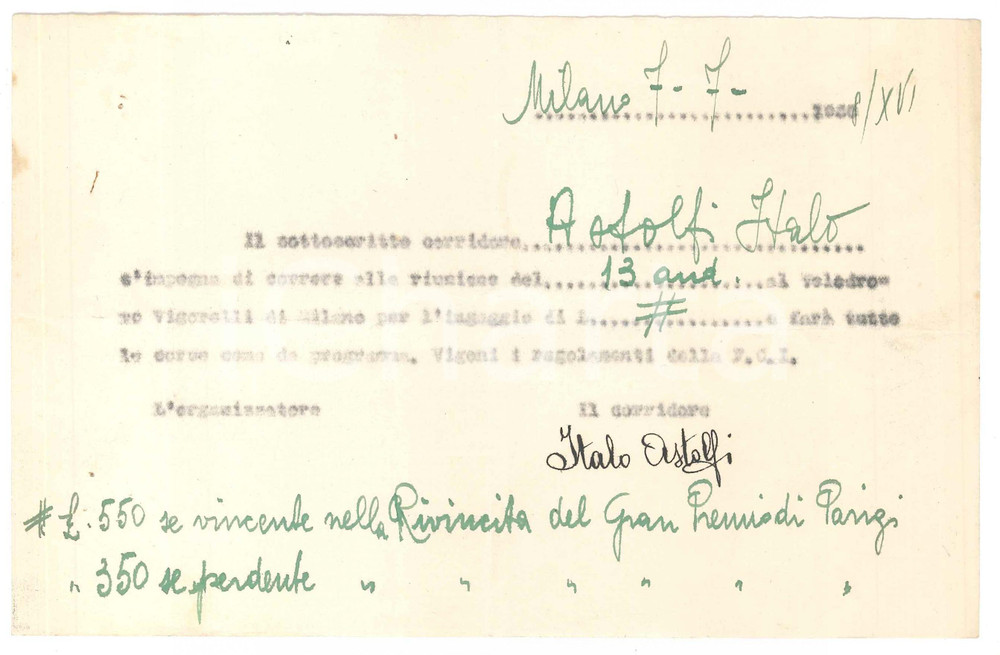 Milano 7-7- ........................... 1938/XVI
Il sottoscritto corridore, Astolfi Italo
s'impegna di correre alla riunione del 13 and. al Velodro=
mo Vigorelli di Milano per l'ingaggio di L. # e farà tutte
le corse come da programma. Vigoni i regolamenti della F.C.I.
L'organizzatore Il corridore
Italo Astolfi
# £. 550 se vincente nella Rivincita del Gran Premio di Parigi
" 350 se perdente " " " " " "